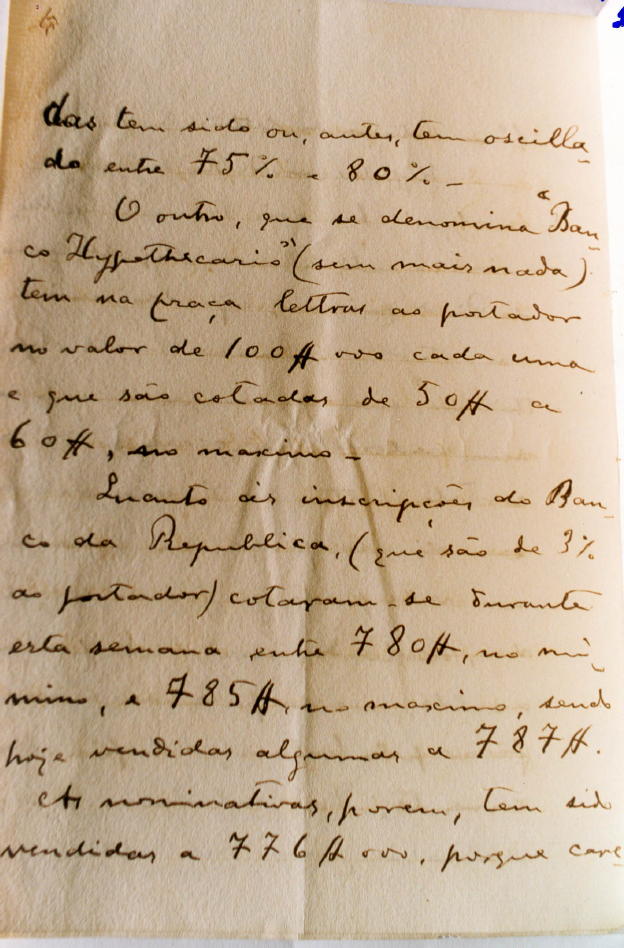 das tem sido ou, antes, tem oscilla-
do entre 75% e 80%_
O outro, que se denomina "Ban-
co Hypothecario" (sem mais nada)
tem na praça lettras ao portador
no valor de 100$000 cada uma
e que são cotadas de 50$ a
60$, no maximo_
Quanto ás inscripções do Ban-
co da Republica, (que são de 3%
ao portador) cotaram-se durante
esta semana entre 780$, no mi-
nimo, e 785$, no maximo, sendo
hoje vendidas algumas a 787$.
As nominativas, porem, tem sido
vendidas a 776$000, porque care-